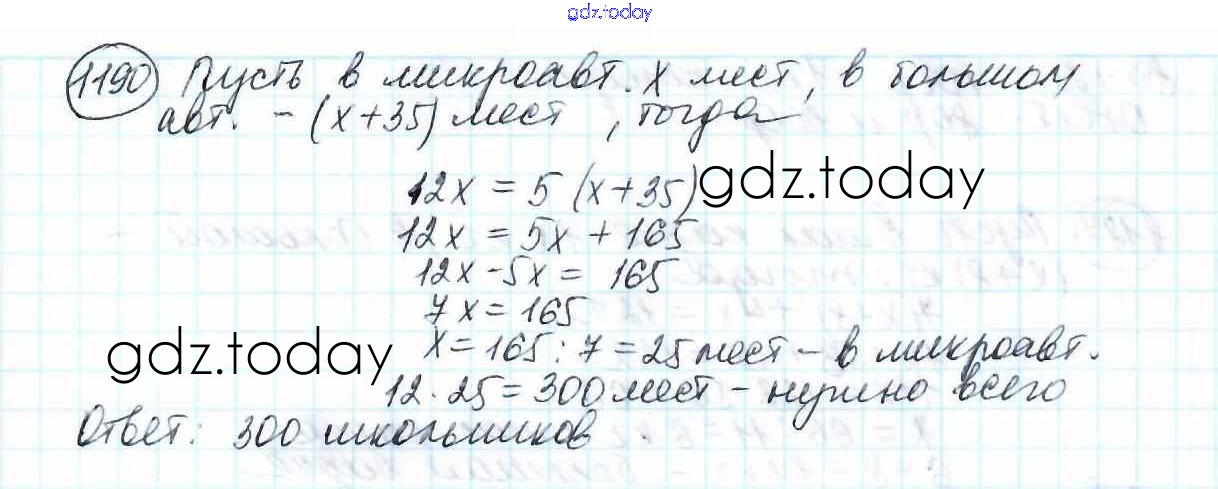 gdz.today
1190 Пусть в микроавт. x мест, в большом
авт. - (x+35) мест, тогда
12x = 5 (x+35) gdz.today
12x = 5x + 165
12x - 5x = 165
7x = 165
gdz.today x = 165 : 7 = 25 мест - в микроавт.
12 · 25 = 300 мест - нужно всего
Ответ: 300 школьников